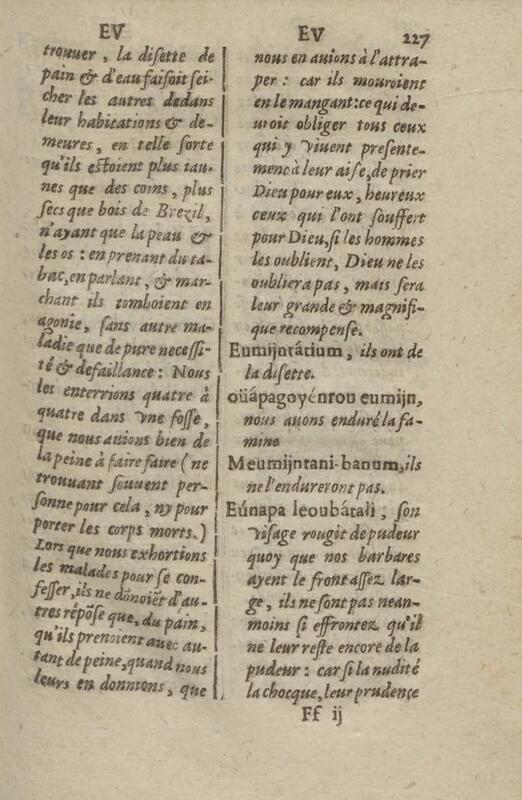 EV
EV 227
trouuer, la disette de
pain & d'eau faisoit sei-
cher les autres dedans
leur habitations & de-
meures, en telle sorte
qu'ils estoient plus iau-
nes que des coins, plus
secs que bois de Brezil,
n'ayant que la peau &
les os : en prenant du ta-
bac, en parlant, & mar-
chant ils tomboient en
agonie, sans autre ma-
ladie que de pure necessi-
té & defaillance : Nous
les enterrions quatre à
quatre dans vne fosse,
que nous auions bien de
la peine à faire faire (ne
trouuant souuent per-
sonne pour cela, ny pour
porter les corps morts.)
Lors que nous exhortions
les malades pour se con-
fesser, ils ne dōnoiēt d'au-
tres répōse que, du pain,
qu'ils prenoient auec au-
tant de peine, quand nous
leurs en donnions, que
nous en auions à l'attra-
per : car ils mouroient
en le mangant : ce qui de-
uroit obliger tous ceux
qui y viuent presente-
menc à leur aise, de prier
Dieu pour eux, heureux
ceux qui l'ont souffert
pour Dieu, si les hommes
les oublient, Dieu ne les
oubliera pas, mais sera
leur grande & magnifi-
que recompense.
Eumijntátium, ils ont de
la disette.
oüápagoyénrou eumijn,
nous auons enduré la fa-
mine
Meumijntani-banum, ils
ne l'endureront pas.
Eúnapa leoubátali ; son
visage rougit de pudeur
quoy que nos barbares
ayent le front assez lar-
ge, ils ne sont pas nean-
moins si effrontez qu'il
ne leur reste encore de la
pudeur : car si la nudité
la chocque, leur prudence
Ff ij